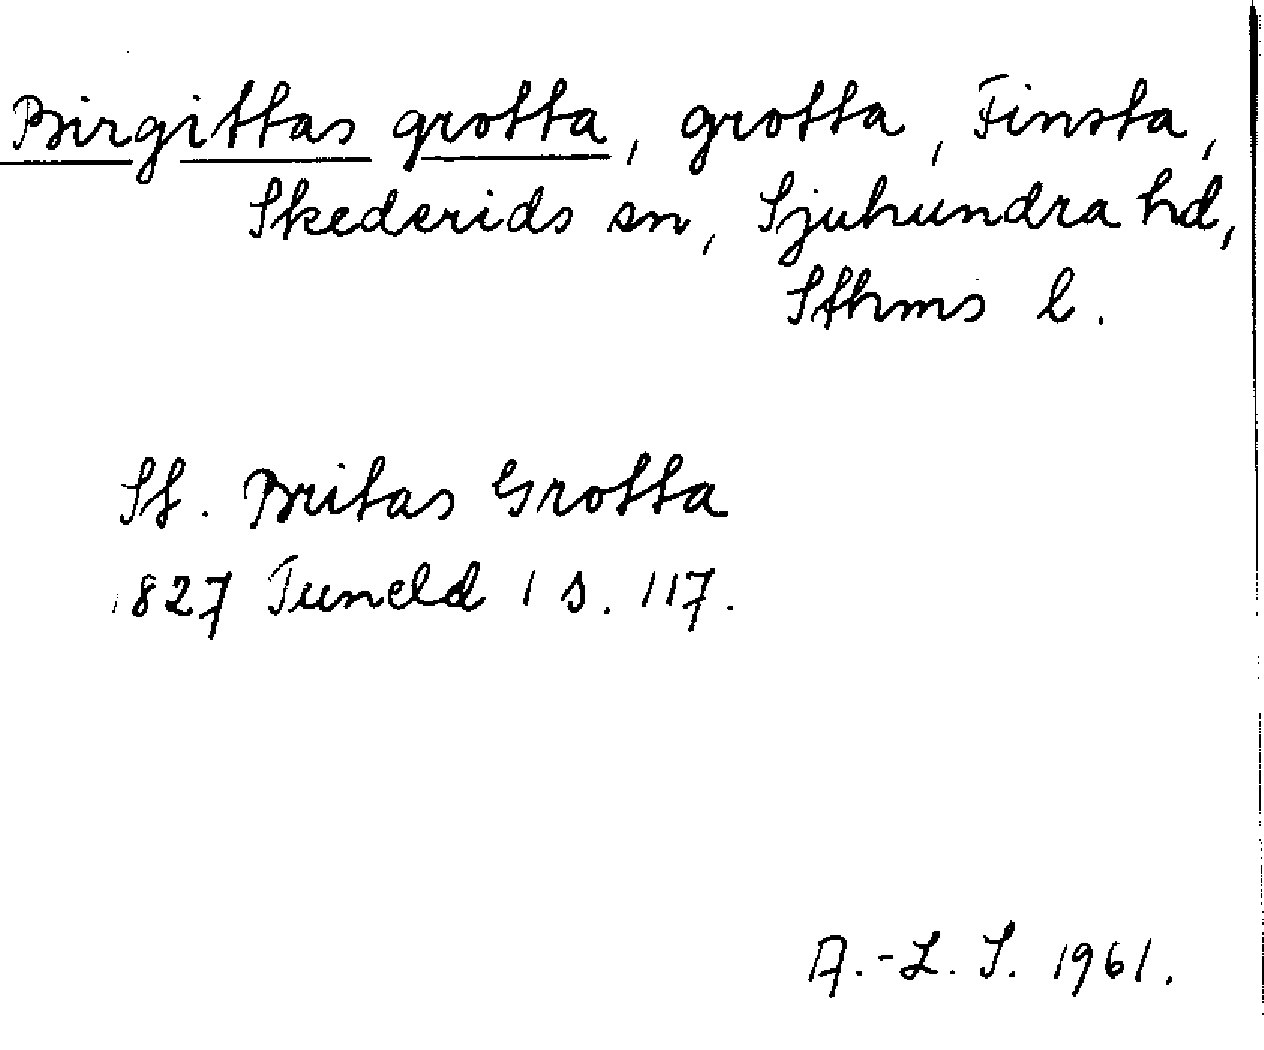 Birgittas grotta, grotta, Finsta,
Skederids sn, Sjuhundra hd,
Sthms l.
St. Britas Grotta
1827 Tuneld 1 s. 117.
A.-L. S. 1961.